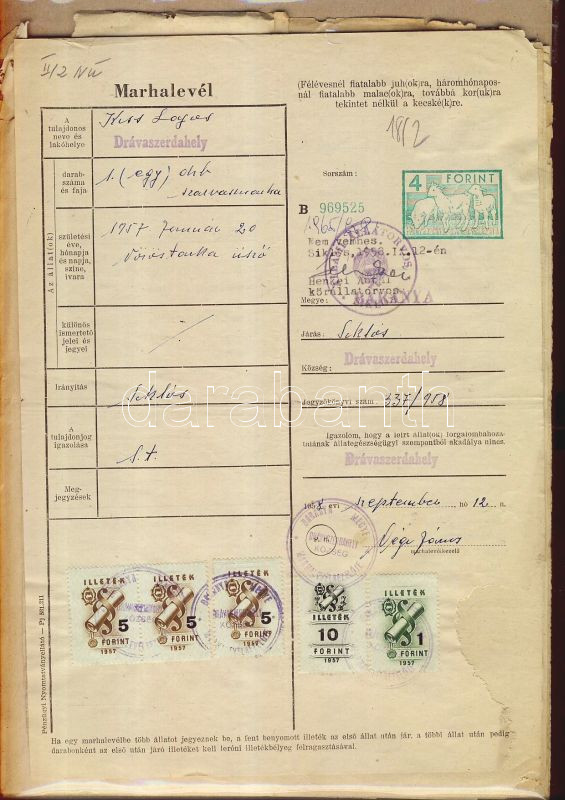 II/2
Marhalevél
(Félévesnél fiatalabb juh(ok)ra, háromhónapos-
nál fiatalabb malac(ok)ra, továbbá kor(uk)ra
tekintet nélkül a kecské(k)re.
18/2
A
tulajdonos
neve és
lakóhelye
Kiss Lajos
Drávaszerdahely
darab-
száma és
faja
1. (egy) drb
szarvasmarha
Az állat(ok)
születési
éve,
hónapja
és napja,
színe,
ivara
1957 Januar 20
Vöröstarka üsző
különös
ismertető
jelei és
jegyei
Irányítás
Siklós
A
tulajdonjog
igazolása
S.t.
Meg-
jegyzések
Sorszám:
B 969525
4 FORINT
Nem vemhes.
Siklós, 1958.IX.12-én
Henkei Antal
körállatorvos.
BARANYA
Megye:
Járás: Siklós
Drávaszerdahely
Község:
Jegyzőkönyvi szám: 337/958
Igazolom, hogy a leírt állat(ok) forgalombahoza-
talának állategészségügyi szempontból akadálya nincs.
Drávaszerdahely
1958 évi szeptember hó 12 n.
Vége János
marhalevélkezelő
BARANYA MEGYE
KÖZSÉG
ILLETÉK
5
FORINT
1957
ILLETÉK
5
FORINT
1957
ILLETÉK
5
FORINT
1957
ILLETÉK
10
FORINT
1957
ILLETÉK
1
FORINT
1957
Pénzügyi Nyomtatványellátó
Ha egy marhalevélbe több állatot jegyeznek be, a fent benyomott illeték az első állat után jár, a többi állat után pedig
darabonként az első után járó illetéket kell leróni illetékbélyeg felragasztásával.
darabanth